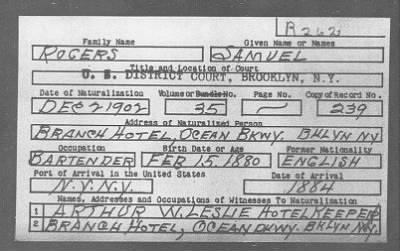 R262
Family Name Given Name or Names
ROGERS SAMUEL
Title and Location of Court
U. S. DISTRICT COURT, BROOKLYN, N.Y.
Date of Naturalization Volume or Bundle No. Page No. Copy of Record No.
DEC 2 1902 35 — 239
Address of Naturalized Person
BRANCH HOTEL, OCEAN BKWY. BKLYN NY
Occupation Birth Date or Age Former Nationality
BARTENDER FEB 15, 1880 ENGLISH
Port of Arrival in the United States Date of Arrival
N.Y. N.Y. 1884
Names, Addresses and Occupations of Witnesses To Naturalization
1 ARTHUR W. LESLIE HOTELKEEPER
2 BRANCH HOTEL, OCEAN BKLYN NY.